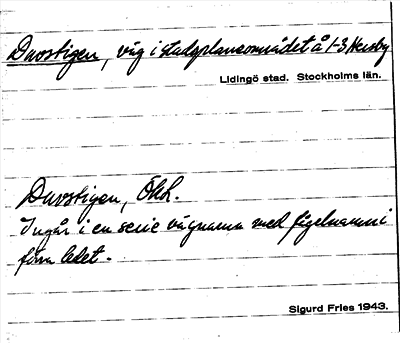 Duvstigen, väg i stadsplaneområdet å 1-3 Hersby
Lidingö stad. Stockholms län.
Duvstigen,
Ingår i en serie vägnamn med fågelnamn i
förra ledet.
Sigurd Fries 1943.